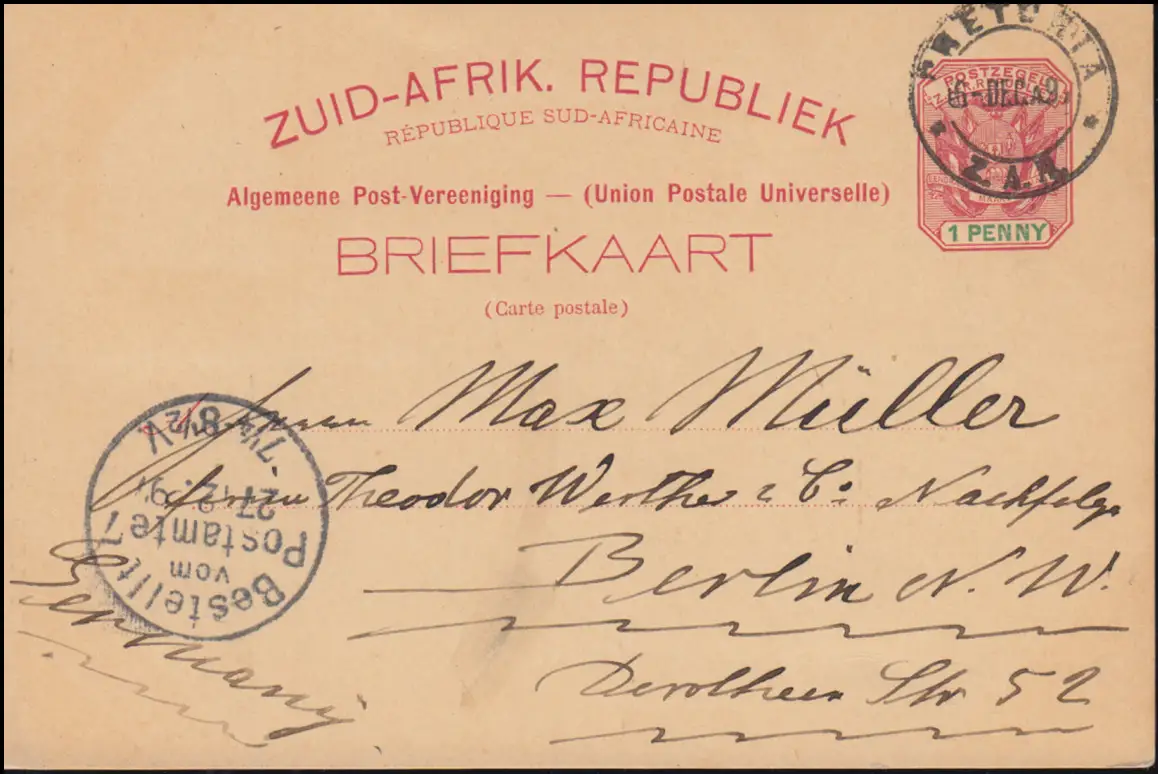 ZUID-AFRIK. REPUBLIEK
RÉPUBLIQUE SUD-AFRICAINE
Algemeene Post-Vereeniging — (Union Postale Universelle)
BRIEFKAART
(Carte postale)
PRETORIA
6-DEC. 9
Z.A.R.
POSTZEGEL
Z. AFR. REPUBLIEK
1 PENNY
Herrn Max Müller
Theodor Werther & Co Nachfolgr
Berlin N. W.
Dorotheen Str 52
Germany
Bestellt
vom
Postamte 7
27.12.9
7¼-8½V